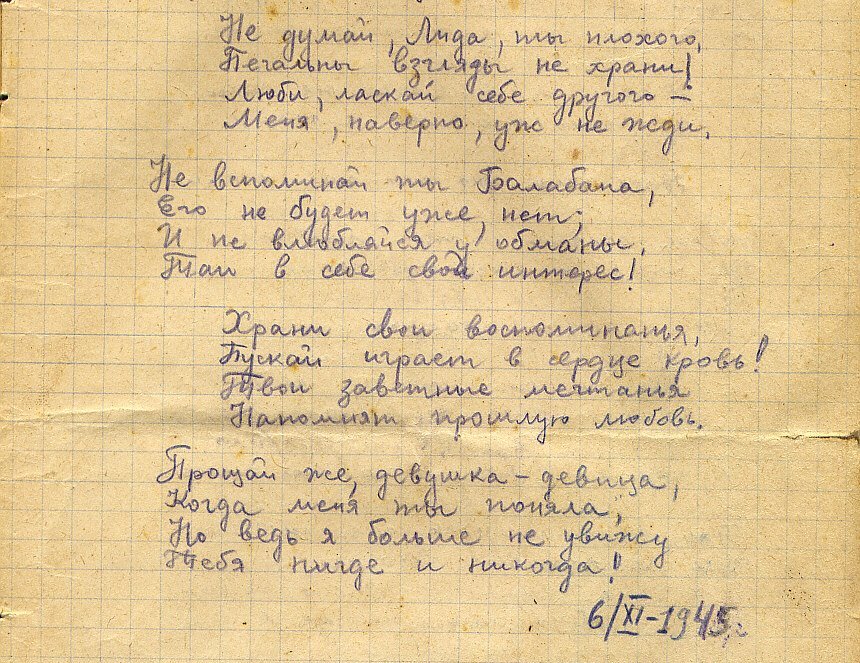 Не думай, Лида, ты плохого,
Печальны взгляды не храни!
Люби, ласкай себе другого –
Меня, наверно, уж не жди.
Не вспоминай ты Балабана,
Его не будет уже, нет;
И не влюбляйся у обманы,
Таи в себе свой интерес!
Храни свои воспоминанья,
Пускай играет в сердце кровь!
Твои заветные мечтанья
Напомнят прошлую любовь.
Прощай же, девушка – девица,
Когда меня ты поняла,
Но ведь я больше не увижу
Тебя нигде и никогда!
6/XI – 1945 г.